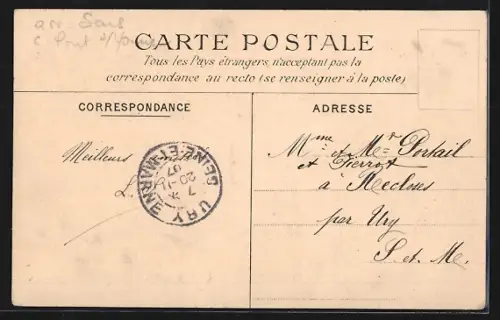 CARTE POSTALE
Tous les Pays étrangers n'acceptant pas la
correspondance au recto (se renseigner à la poste)
CORRESPONDANCE
ADRESSE
Meilleurs
L.
URY
SEINE-ET-MARNE
7
20-11
07
Mme et Mr Portail
et Pierrot
à Recloses
par Ury
S. et M.